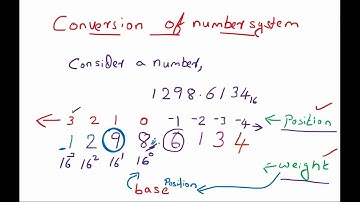 Conversion of number system
Consider a number,
1298.6134₁₆
3 2 1 0 -1 -2 -3 -4 position
1 2 9 8 . 6 1 3 4
16³ 16² 16¹ 16⁰ weight
base Position